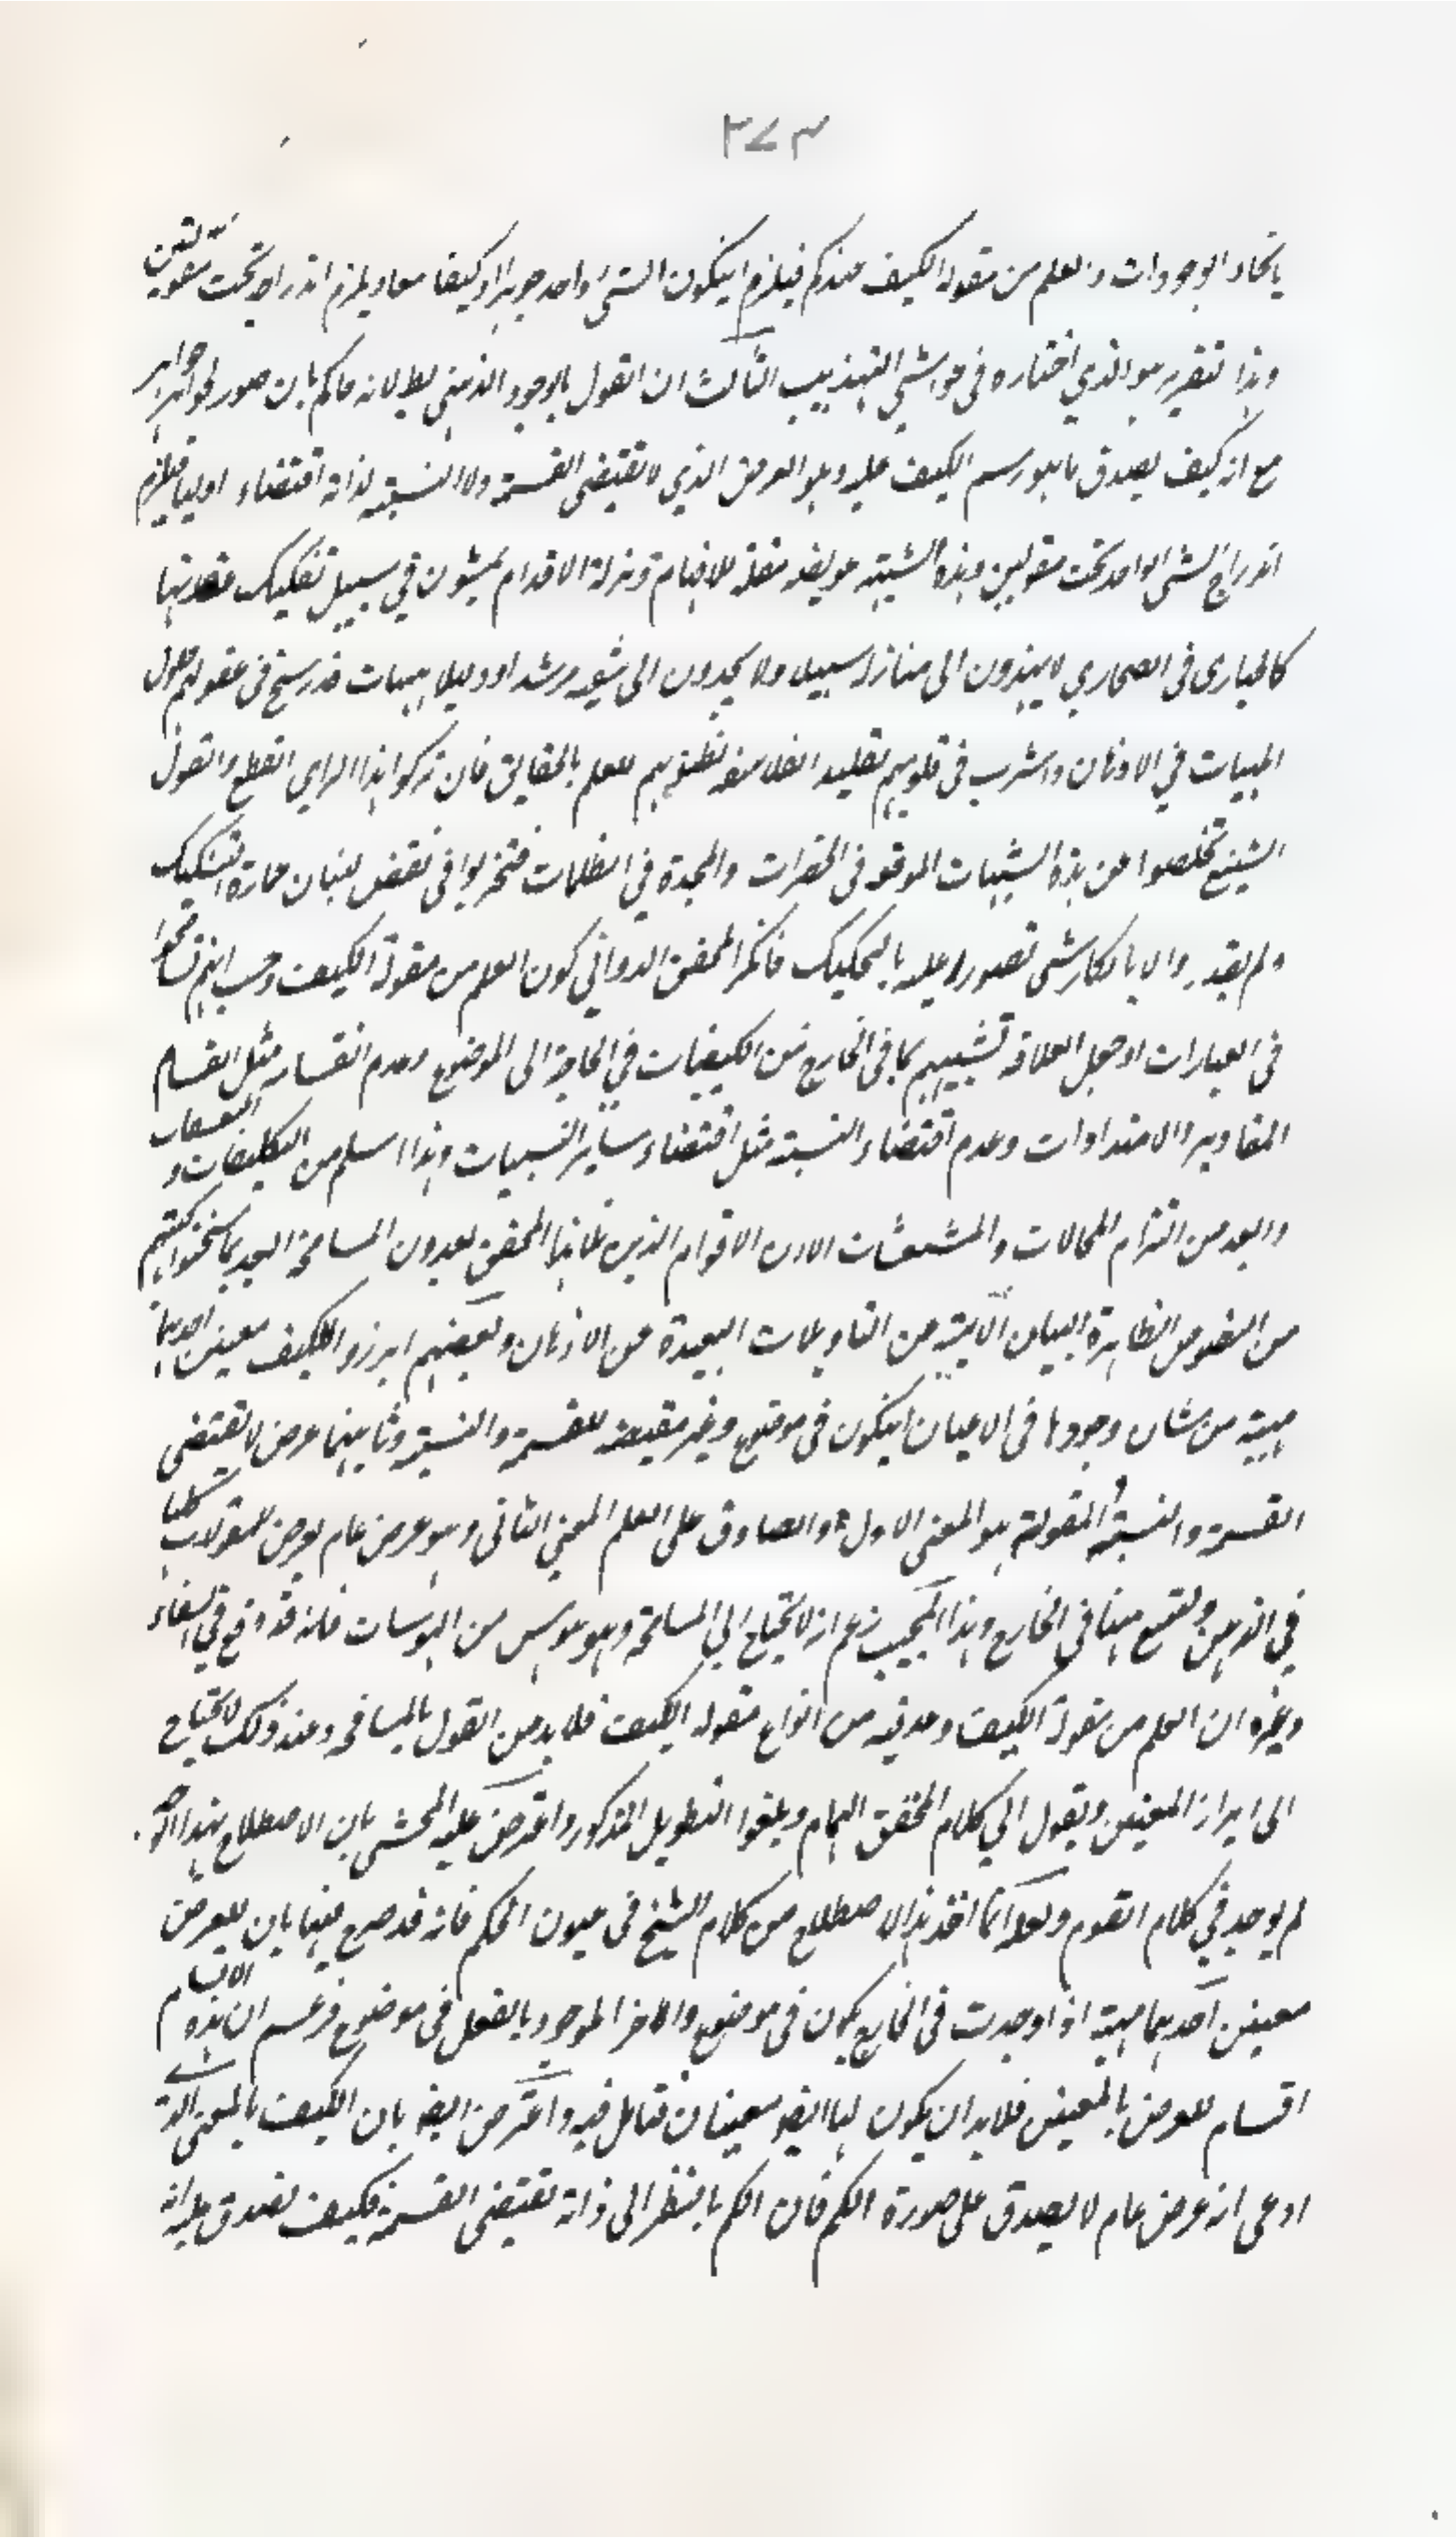 ٣٧٣
باتحاد الوجودات والعلم من مقولة الكيف عندكم فيلزم ان يكون الشئ الواحد جوهرا وكيفا معا ويلزم اندراجه تحت مقولتين
وهذا تقرير هو الذي اختاره في حواشي التهذيب الثالث ان القول بالوجود الذهني بطلانه حاكم بان صور الجواهر جواهر
مع انه كيف يصدق ما هو رسم الكيف عليه وهو العرض الذي لا يقتضي القسمة ولا النسبة لذاته اقتضاء اوليا فيلزم
اندراج الشئ الواحد تحت مقولتين وهذه الشبهة عويصة للافهام ومزلة الاقدام يمشون في سبيل تفكيك عقدتها
كالحيارى في الصحاري لا يهتدون الى منازل سبيلا ولا يجدون الى مرشدا ودليلا هيهات قد رسخ في عقولهم حلول
المهيات في الاذهان واشرب في قلوبهم تقليد الفلاسفة لظنونهم للعلم بالحقايق فان تركوا هذا الراي القطع والقول
الشنيع تخلصوا من هذه الشبهات الموقعة في الحضرات في الظلمات في نقض بنيان التشكيك
ولم يقدروا الا بانكار شئ تصوروا عليه بالتحكيك فانكر المحقق الدواني كون العلم من مقولة الكيف وحسب انهم تسامحوا
في العبارات اوجل العلاقة تشبيههم بما في الخارج من الكيفيات في الحاجة الى الموضوع وعدم انقسامه مثل انقسام
المقادير والامتدادات وعدم اقتضاء النسبة مثل اقتضاء ساير النسبيات وهذا اسلم من التكليفات و
وابعد من التزام المحالات الا ان الاقوام الذين المحقق يعدون المسامحة
من النصوص الظاهرة البيان الآبية من التاويلات البعيدة عن الاذهان وبعضهم ابرزوا للكيف معنيين احدهما
مهية من شان وجودها في الاعيان ان يكون في موضوع وغير مقتضية للقسمة والنسبة وثانيهما عرض لا يقتضي
القسمة والنسبة والمقولة هو المعنى الاول والصادق على العلم المعنى الثاني وهو عرض عام يعرض المقولات كلها
في الذهن ولقسم منها في الخارج وهذا المجيب زعم انه لا يحتاج الى المسامحة وهو هوس من الهوسات فانه قد وقع في الشفاء
وغيره ان العلم من مقولة الكيف وعدوه من انواع مقولة الكيف فلا بد من القول بالمسامحة وعند ذلك لا يحتاج
الى ابراز المعنيين ويقول الى كلام المحقق الهمام ويلغوا التطويل المذكور واعترض عليه المحشي بان الاصطلاح بهذا
لم يوجد في كلام القوم ولعله انما اخذ هذا الاصطلاح من كلام الشيخ في عيون الحكم فانه قد صرح فيها بان للعرض
معنيين احدهما مهية اذا وجدت في الخارج يكون في موضوع والاخر الموجود بالفعل في موضوع فزعم ان هذه الاقسام
اقسام للعرض بالمعنيين فلا بد ان يكون لها ايضا معنيان فتامل فيه واعترض ايضا بان الكيف بالمعنى الذي
ادعى انه عرض عام لا يصدق على صورة الكم فان الكم بالنظر الى ذاته يقتضي القسمة فكيف يصدق عليه انه